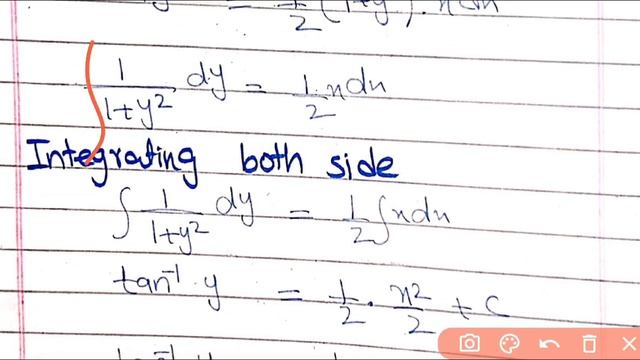 = 1/2 (1+y²). x dx
1/(1+y²) dy = 1/2 x dx
Integrating both side
∫ 1/(1+y²) dy = 1/2 ∫ x dx
tan⁻¹ y = 1/2 . x²/2 + c